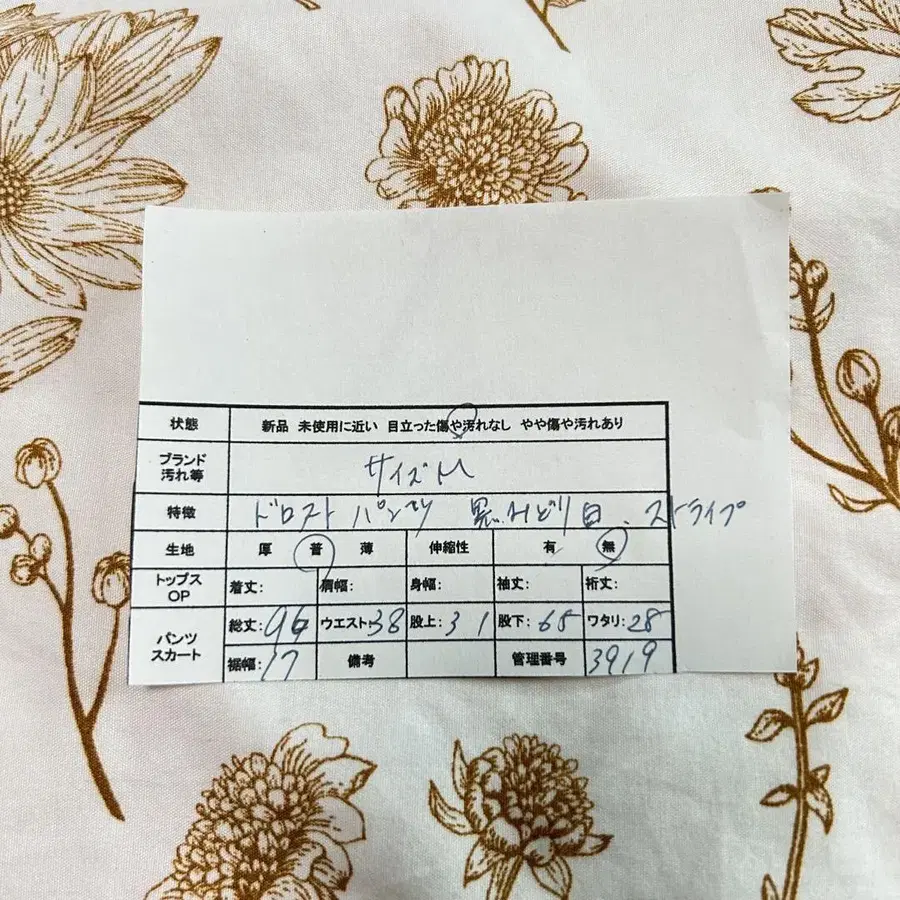 状態 新品 未使用に近い 目立った傷や汚れなし やや傷や汚れあり
ブランド 汚れ等 サイズM
特徴 ドロスト パンツ 黒.みどり白.ストライプ
生地 厚 普 薄 伸縮性 有 無
トップス OP 着丈: 肩幅: 身幅: 袖丈: 裄丈:
パンツ スカート 総丈:96 ウエスト:38 股上:31 股下:68 ワタリ:28
裾幅:17 備考 管理番号 3919